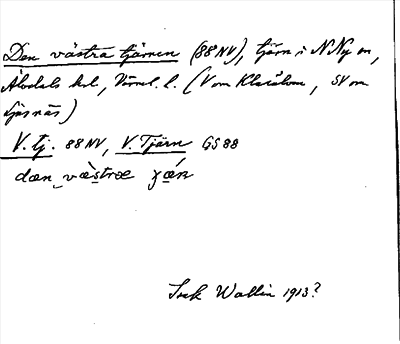 Den västra tjärnen (88 NV), tjärn i N Ny sn,
Älvdals hd, Värml. l. (V om Klarälven, SV om
Ljusnäs)
V. tj. 88 NV, V. Tjärn GS 88
dæn væstræ
Wallin 1913?